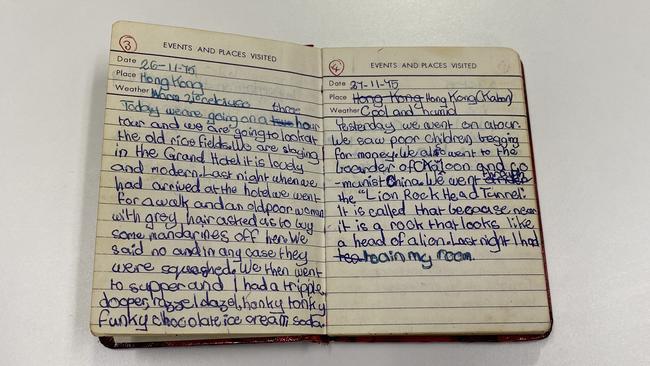 3
EVENTS AND PLACES VISITED
Date 26-11-75
Place Hong Kong
Weather Warm
three
Today weare going on a hour
tour and we are going to look at
the old rice fields. We are staying
in the Grand Hotel it is lovely
and modern. Last night when we
had arrived at the hotel we went
for a walk and an old poor woman
with grey hair asked us to buy
some mandarines off her. We
said no and in any case they
were squashed. We then went
to supper and I had a tripple
dooper, razzel dazel, honky tonky
funky chocolate ice cream soda.
4
EVENTS AND PLACES VISITED
Date 27-11-75
Place Hong Kong Hong Kong
Weather Cool and humid
Yesterday we went on a tour.
We saw poor children begging
for money. We also went to the
boarder of and co
-munist China. We went through
the "Lion Rock Head Tunnel".
It is called that because near
it is a rock that looks like
a head of a lion. Last night I had
tea in my room.